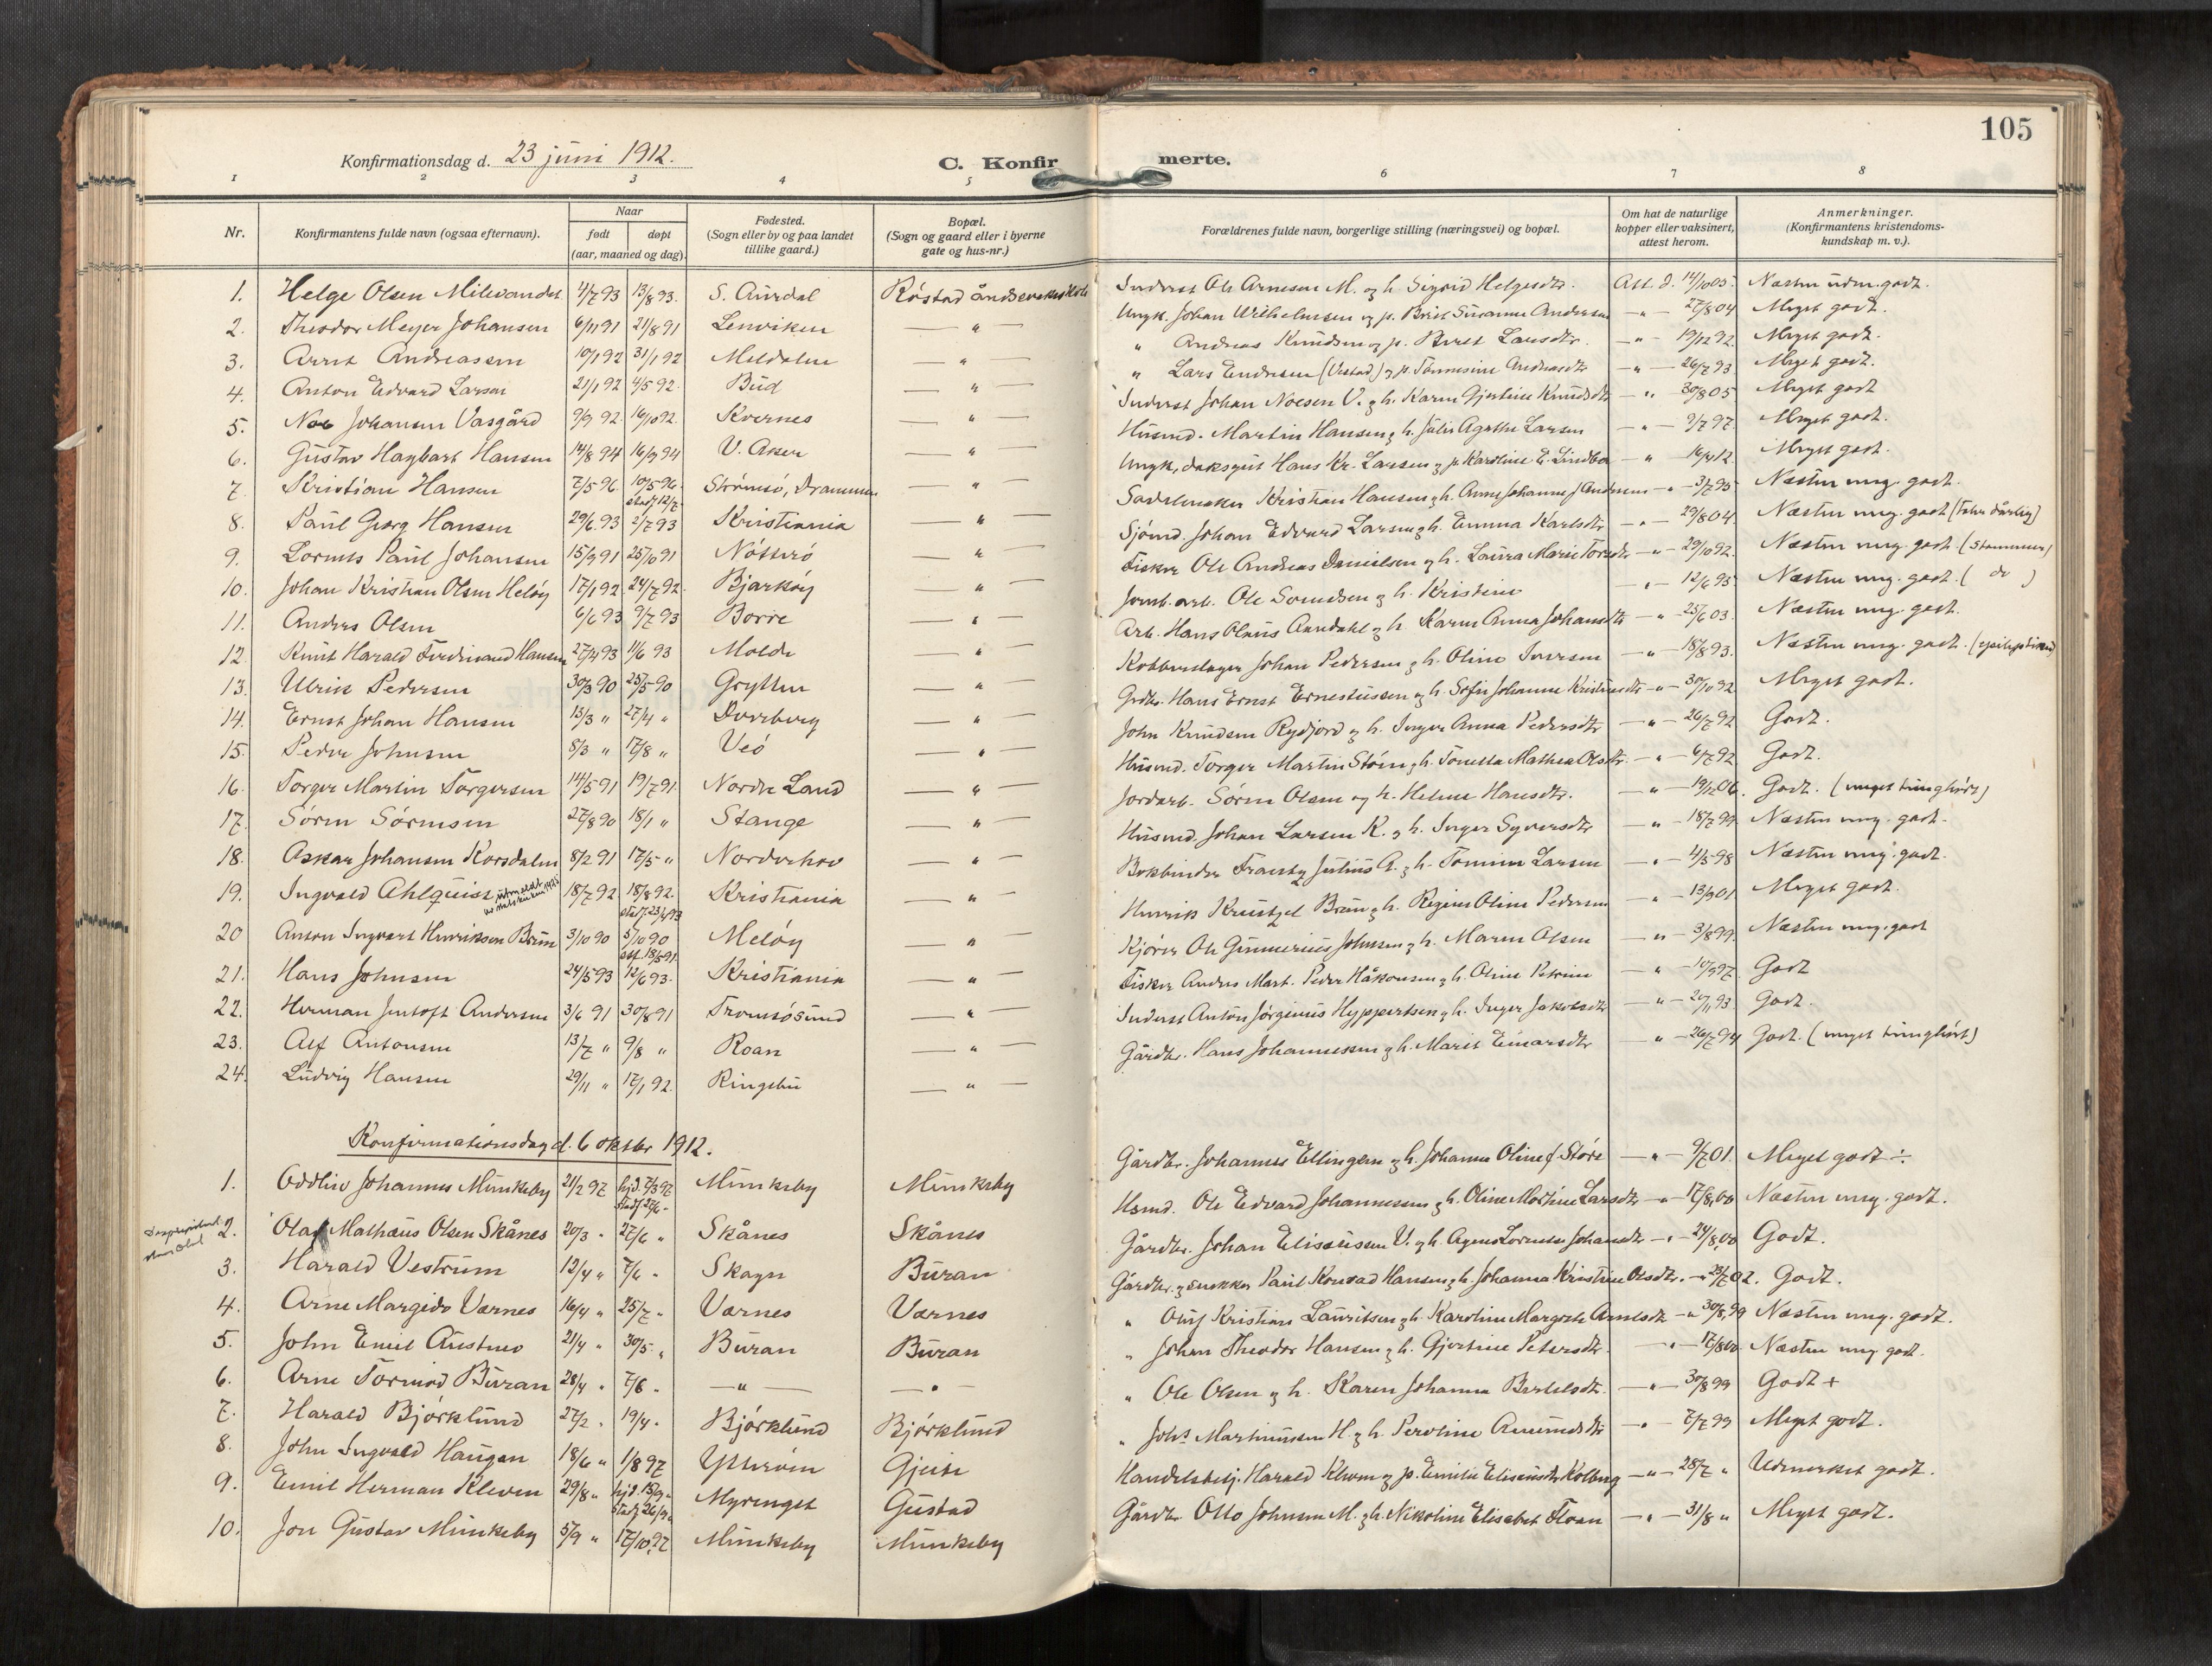 105
Konfirmationsdag d. 23 juni 1912. C. Konfirmerte.
1 2 3 4 5 6 7 8
Nr. Konfirmantens fulde navn (ogsaa efternavn). Naar født døpt (aar, maaned og dag). Fødested. (Sogn eller by og paa landet tillike gaard.) Bopæl. (Sogn og gaard eller i byerne gate og hus-nr.) Forældrenes fulde navn, borgerlige stilling (næringsvei) og bopæl. Om hat de naturlige kopper eller vaksinert, attest herom. Anmerkninger. (Konfirmantens kristendomskundskap m. v.).
1. Helge Olsen 4/7 93 13/8 93. S. Aurdal Røstad åndssvakeskole Inderst Ole Arnesen M. og h. Sigrid Helgesdtr. Att. d. 14/10 05. Næsten udm. godt.
2. Theodor Meyer Johansen 6/11 91 21/8 91 Lenviken — " — Ungk. Johan Wilhelmsen og p. Berit Susanne Andersen — " — 27/8 04 Meget godt.
3. Arnt Andreassen 10/1 92 31/1 92 Meldalen — " — " Andreas Knudsen og p. Berit Larsdtr. — " — 19/12 92. Meget godt.
4. Anton Edvard Larsen 21/1 92 4/5 92. Bud — " — " Lars Endresen (Vestad) og p. Andreasdtr — " — 26/7 93 Meget godt.
5. Noe Johansen Vasgård 9/9 92 16/10 92. Kvernes — " — Inderst Johan Noesen V. og h. Karen Gjertine Knudsdtr — " — 30/8 05 Meget godt
6. Gustav Hagbart Hansen 14/8 94 16/9 94 V. Aker — " — Husmd. Martin Hansen og h. Julie Agathe Larsen — " — 9/7 97 Meget godt.
7. Kristian Hansen 7/5 96 10/5 96. stadf. 12/7 Strømsø, Drammen — " — Ungk. Hans Kr. Larsen og p. Karoline E. — " — Meget godt.
8. Paul Georg Hansen 29/6 93 2/7 93 Kristiania — " — Sadelmaker Kristian Hansen og h. Anne Johanne Andersen — " — 3/7 95 Næsten meg. godt.
9. Lornts Paul Johansen 15/9 91 25/10 91 Nøtterø — " — Sjømd. Johan Edvard Larsen og h. Emma Karlsdtr — " — 29/8 04. Næsten meg. godt (Taler dårlig)
10. Johan Kristian Olsen Heløy 17/1 92 24/7 92. Bjarkøy — " — Fisker Ole Andreas Danielsen og h. Laura Marie — " — 29/10 92. Næsten meg. godt. (stammer)
11. Anders Olsen 6/6 93 9/7 93 Borre — " — Jernb. arb. Ole Svendsen og h. Kristine — " — 12/6 95 Næsten meg. godt. ( do )
12. Knut Harald Ferdinand Hansen 27/4 93 11/6 93 Molde — " — Arb. Hans Olaus Aandahl og h. Karen Anna Johansdtr — " — 25/6 03. Næsten meg. godt.
13. Ulrik Pedersen 30/3 90 25/5 90 Grytten — " — Kobberslager Johan Pedersen og h. Oline Iversen — " — 18/8 93. Næsten meg. godt. (epileptiker)
14. Ernst Johan Hansen 13/3 " 27/4 " Dverberg — " — Grdbr. Hans Ernst Ernestussen og h. Sofie Johanne Kristensdtr — " — 30/10 92 Meget godt.
15. Peder Johnsen 5/3 " 17/8 " Veø — " — John Knudsen Rydjord og h. Inger Anna Pedersdtr — " — 26/7 92 Godt.
16. Torger Martin Torgersen 14/5 91 19/7 91. Nordre Land — " — Husmd. Torger Martin Støen og h. Mathea Olsdtr. — " — 6/7 92 Godt.
17. Søren Sørensen 27/8 90 18/1 " Stange — " — Jordarb. Søren Olsen og h. Helene Hansdtr. — " — 19/12 06. Godt. (meget tunghørt)
18. Oskar Johansen Korsdalen 8/2 91 17/5 " Norderhov — " — Husmd. Johan Larsen K. og h. Inger Syversdtr — " — 18/7 99 Næsten meg. godt.
19. Ingvald Ahlquist 18/7 92 18/8 92. stadf. 23/4 93 Kristiania — " — Bokbinder Julius A. og h. Larsen — " — 4/5 98 Næsten meg. godt.
20 Anton Ingvart Henriksen Brun 3/10 90 5/10 90 stf. 18/5 91. Meløy — " — Henrik Brun og h. Regine Oline Pedersen — " — 13/9 01. Meget godt.
21. Hans Johnsen 24/5 93 12/6 93. Kristiania — " — Kjører Ole Gunnerius Johnsen og h. Maren Olsen — " — 3/8 99. Næsten meg. godt
22. Herman Jentoft Andersen 3/6 91 30/8 91 Tromsøsund — " — Fisker Anders Mart. Peder Håkonsen og h. Oline Petrine — " — 10/9 97. Godt
23. Alf Antonsen 13/7 " 9/8 " Roan — " — Inderst Anton Jørginus Hyppertsen og h. Inger Jakobsdtr — " — 20/11 93. Godt.
24. Ludvig Hansen 29/11 " 17/1 92 Ringebu — " — Gårdbr. Hans Johannessen og h. Marit Einarsdtr — " — 26/7 94 Godt. (meget tunghørt)
Konfirmationsdag d. 6 oktbr 1912.
1. Oddliv Johannes Munkeby 21/2 97 hjd. 7/3 97 stadf. 27/6 – Munkeby Munkeby Gårdbr. Johannes Ellingsen og h. Johanna Oline f. Støre — " — 9/7 01. Meget godt ÷
2. Olaf Mathæus Olsen Skånes 20/3 " 27/6 " Skånes Skånes Hsmd. Ole Edvard Johannessen og h. Oline Martine Larsdtr — " — 17/8 00 Næsten meg. godt.
3. Harald Vestrum 12/4 " 7/6 " Skogn Buran Gårdbr. Johan Eliseussen V. og h. Agnes Lorntse Johansdtr — " — 24/8 00 Godt.
4. Arne Margido Værnes 16/4 " 25/7 " Værnes Værnes Gårdbr. og snekker Paul Konrad Hansen og h. Johanna Kristine Olsdtr. — " — 23/7 02. Godt.
5. John Emil Austmo 21/4 " 30/5 " Buran Buran " Oluf Kristian Lauritsen og h. Karoline Margrete Arntsdtr — " 30/8 99 Næsten meg. godt.
6. Arne Tormod Buran 28/4 " 7/6 " — " — — " — " Johan Theodor Hansen og h. Gjertine Petersdtr. — " — 17/8 00. Næsten meg. godt.
7. Harald Bjørklund 27/2 " 19/4 " Bjørklund Bjørklund " Ole Olsen og h. Karen Johanna Bertelsdtr. — " — 30/8 99 Godt +
8. John Ingvald Haugan 18/6 " 1/8 97 Ytterøen Gjeite " Johs Martinussen H. og h. Peroline Amundsdtr — " — 7/7 99 Meget godt.
9. Emil Herman Kleven 29/8 " hjd. 15/9 " stadf. 26/9 " Myrenget Gustad Handelsbetj. Harald Kleven og p. Emilie Eliseusdtr Kolberg — " — 28/7 " Udmerket godt.
10. Jon Gustav Munkeby 5/9 " 17/10 97 Munkeby Munkeby Gårdbr Otto Johnsen M. og h. Nikoline Elisabet Floan — " — 31/8 " Meget godt.